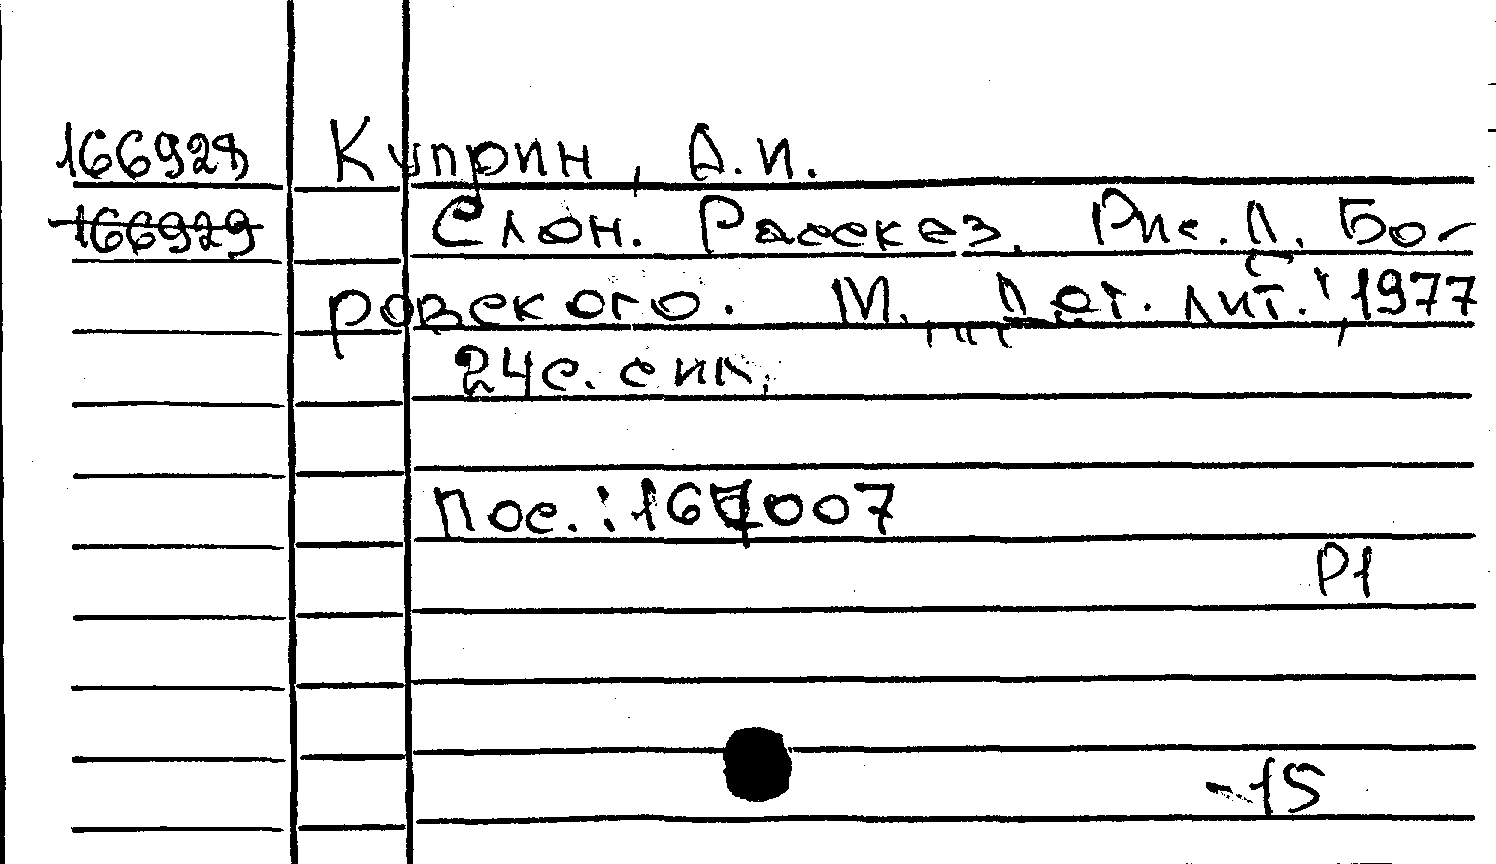 166928 Куприн, А.И.
166929 Слон. Рассказ. Рис. Д. Бо-
ровского. М., "Дет. лит.", 1977
24с. с ил.
Пос.: 167007
Р1
-15